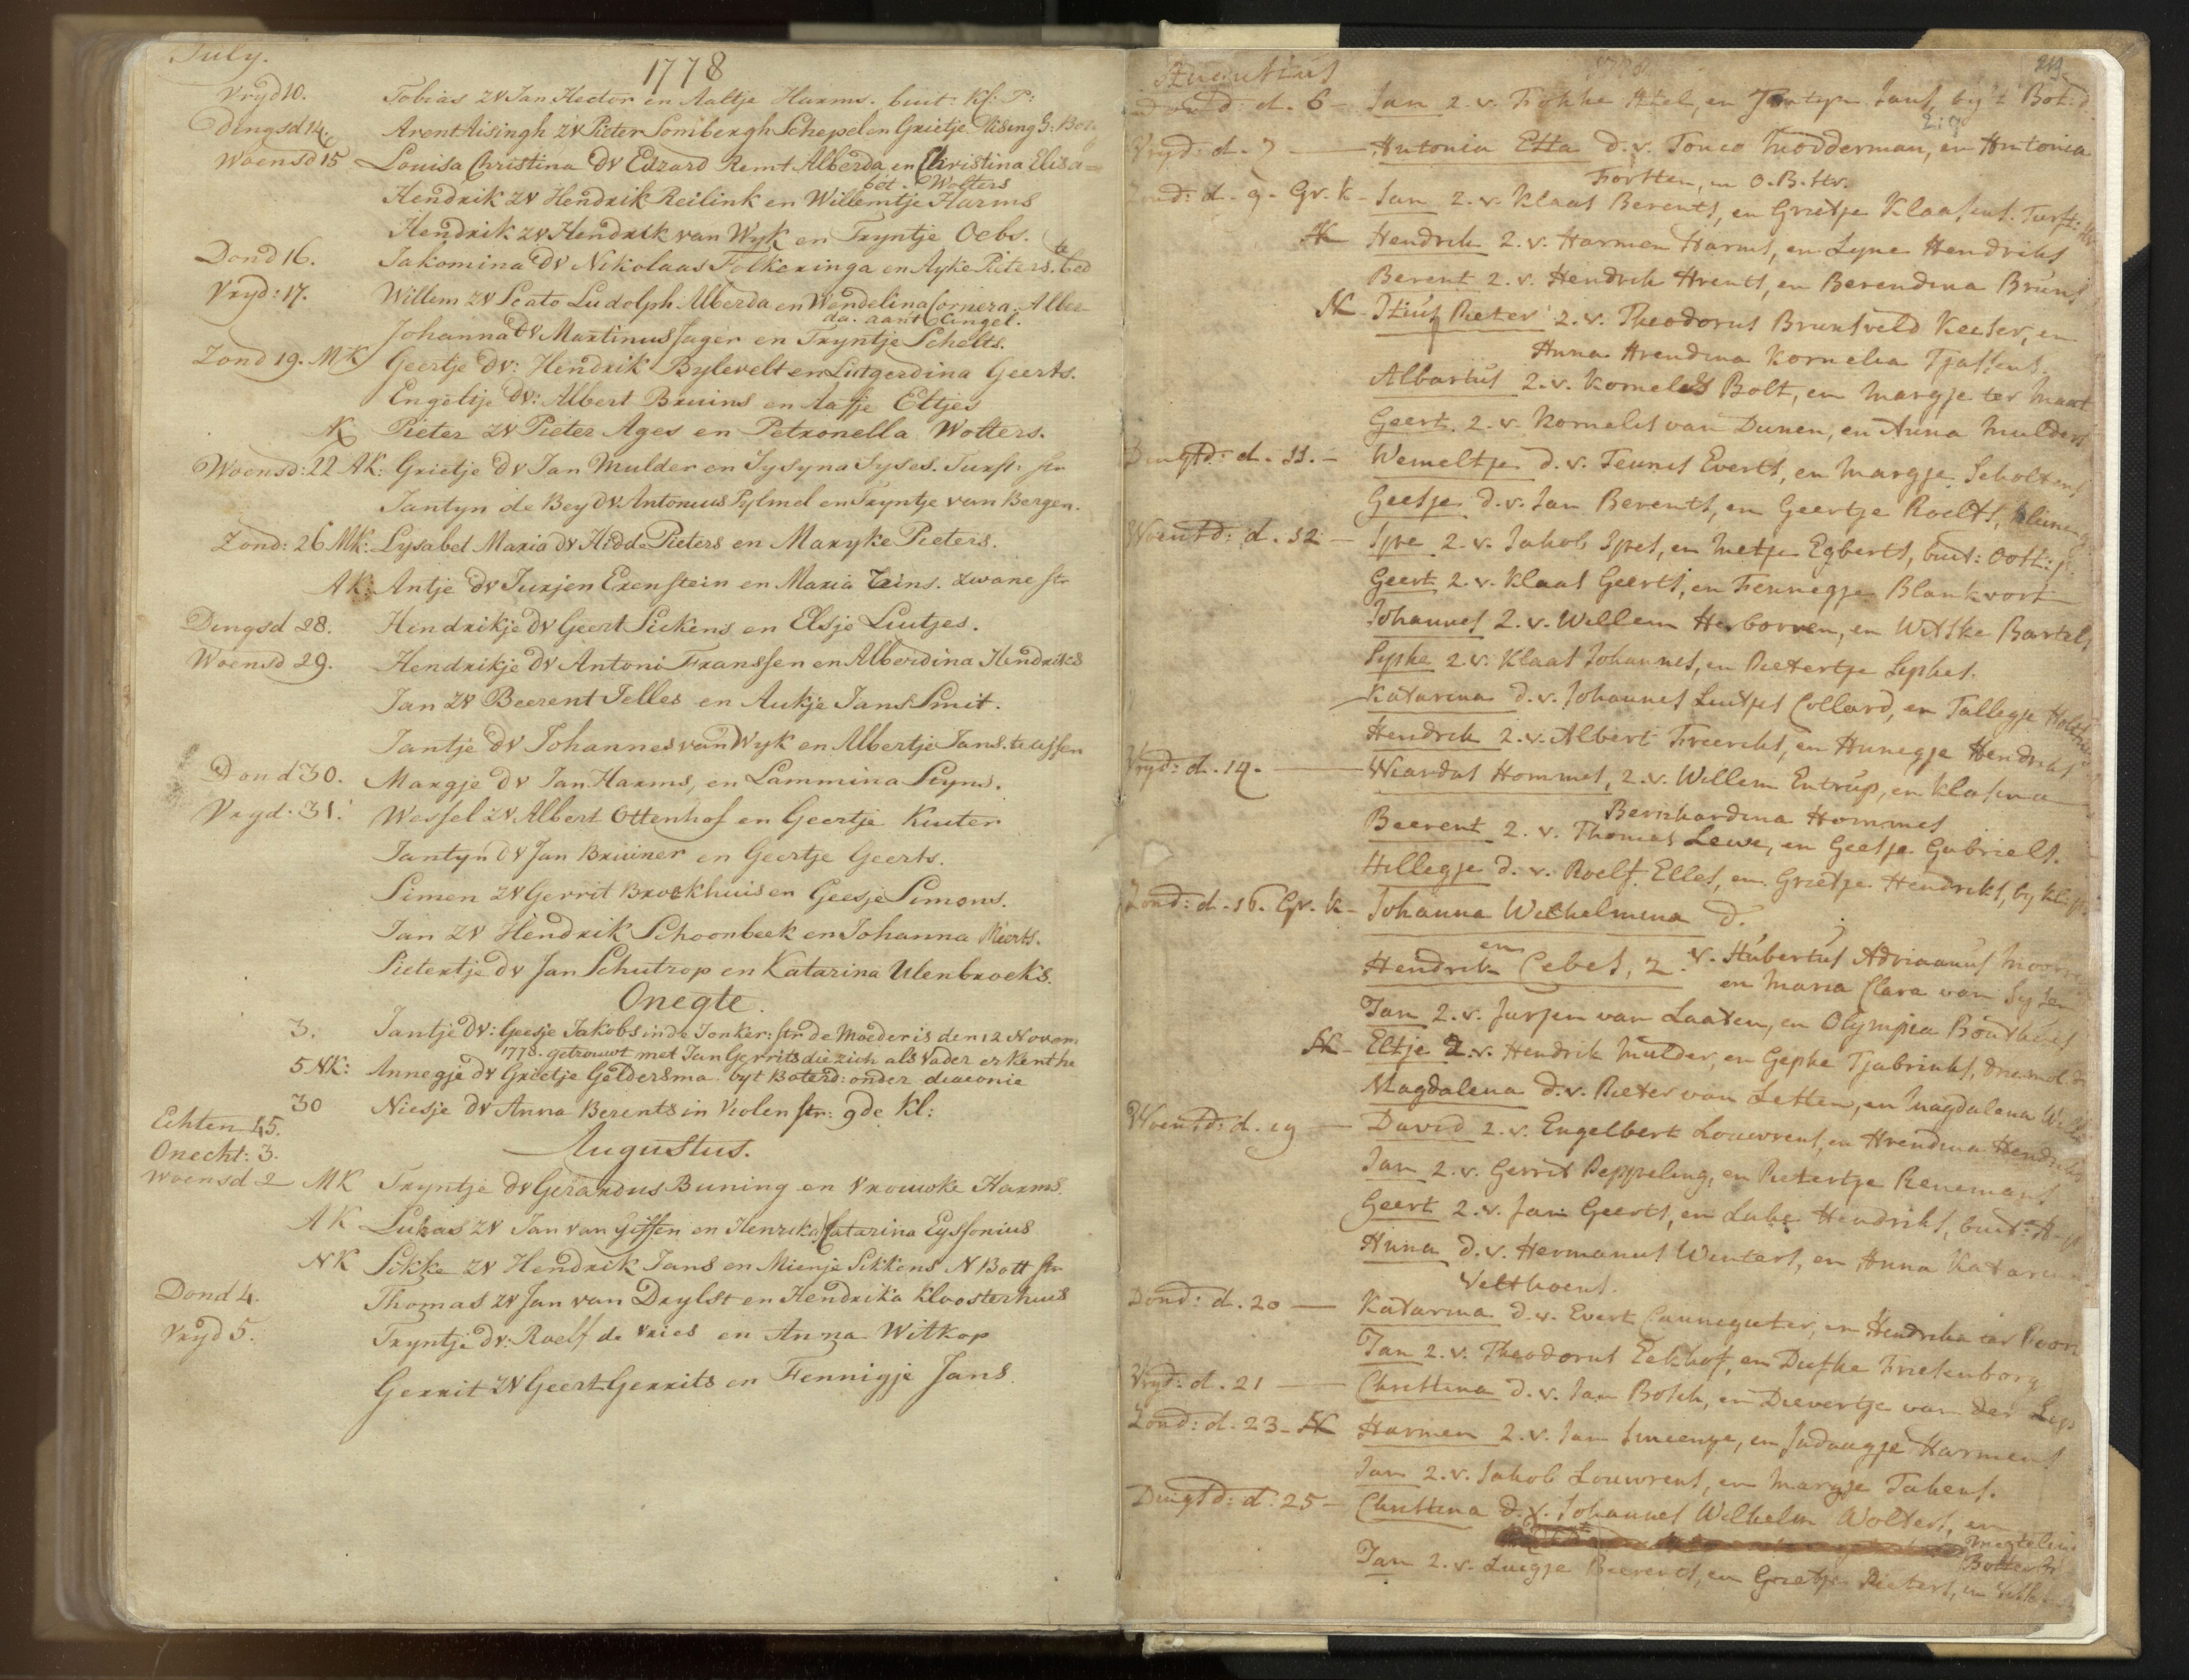 July.
1778
Vryd 10. Tobias ZV Jan Hector en Aaltje Harms. buit: Kl: P:
Dingsd 14. Arent Aisingh ZV Pieter Sombergh Schepel en Grietje Aising
Woensd 15 Louisa Christina DV Edzard Remt Alberda en Christina Elisa=
bet. Wolters
Hendrik ZV Hendrik Reilink en Willemtje Harms
Hendrik ZV Hendrik van Wyk en Tryntje Oebs.
Dond 16. Jakomina DV Nikolaas Folkeringa en Ayke Pieters.
Vryd: 17. Willem ZV Scato Ludolph Alberda en Wendelina Cornera Alber-
da. aant Cingel.
Johanna DV Martinus Jager en Tryntje Schelts.
Zond 19. MK Geertje DV: Hendrik Bylevelt en Lutgerdina Geerts.
Engeltje DV: Albert Bruins en Aafje Eltjes
NK Pieter ZV Pieter Ages en Petronella Wolters.
Woensd: 22 AK: Grietje DV Jan Mulder en Sysyna Syses. Turfst: str
Jantyn de Bey DV Antonius Pylmel en Tryntje van Bergen.
Zond: 26 MK: Lysabet Maria DV Hidde Pieters en Maryke Pieters.
AK: Antje DV Jurjen Erenstein en Maria Teins. Zwane str
Dingsd 28. Hendrikje DV Geert Siekens en Elsje Luitjes.
Woensd 29. Hendrikje DV Antoni Franssen en Alberdina Hendriks
Jan ZV Beerent Jelles en Aukje Jans Smit.
Jantje DV Johannes van Wyk en Albertje Jans. tussen
Dond 30. Margje DV Jan Harms, en Lammina Seyns.
Vryd. 31. Wessel ZV Albert Ottenhof en Geertje Kuiter
Jantyn DV Jan Bruiner en Geertje Geerts.
Simen ZV Gerrit Broekhuis en Geesje Simons.
Jan ZV Hendrik Schoonbeek en Johanna Mierts.
Pietertje DV Jan Schutrop en Katarina Ulenbroeks.
Onegte.
3. Jantje DV: Geesje Jakobs in de Jonker: str de Moeder is den 12 Novem
1778. getrouwt met Jan Gerrits die zich als Vader erkent he
5 NK: Annegje DV Grietje Geldersma. byt Boterd: onder deaconie
30 Niesje DV Anna Berents in Violen str: 9de Kl:
Echten 45.
Onecht: 3.
Augustus.
Woensd 2 MK Tryntje DV Gerardus Buning en Vrouwke Harms.
AK Lukas ZV Jan van Giffen en Henrika Catarina Eyssonius
NK Sikke ZV Hendrik Jans en Mienje Sikkens N Bott str
Dond 4. Thomas ZV Jan van Drylst en Hendrika Kloosterhuis
Vryd 5. Tryntje DV: Roelf de Vries en Anna Witkop
Gerrit ZV Geert Gerrits en Fennigje Jans.
Augustus
d. 6 - Jan Z. v. Fokke en Jantyn Jans, by 't Bot: d.
Vryd: d. 7 - Antonia Etta D. v. Tonco Modderman, en Antonia
Forsten, in O. B. str.
Zond: d. 9. Gr. K - Jan Z. v. Klaas Berents, en Grietje Klaasens. Turft: str
AK Hendrik Z. v. Harmen Harms, en Lyne Hendriks
Berent Z. v. Hendrik Arents, en Berendina Bruns
NK - Pieter Z. v. Theodorus Brunsveld Keiser, en
Anna Arendina Kornelia Tjassens.
Albartus Z. v. Kornelis Bolt, en Margje ter Maat
Geert Z. v. Kornelis van Dunen, en Anna Mulders
Dingsd: d. 11. - Wemeltje D. v. Teunis Everts, en Margje Scholtens
Geesje D. v. Jan Berents, en Geertje Roelfs,
Woensd: d. 12 - Ipe Z. v. Jakob Ipes, en Metje Egberts, buit: Oost:
Geert Z. v. Klaas Geerts, en Fennegje Blankvort
Johannes Z. v. Willem Herborren, en Witske Bartels
Sypke Z. v. Klaas Johannes, en Pietertje Sephes.
Katarina D. v. Johannes Luitjes Collard, en Tallegje
Hendrik Z. v. Albert Freerks, en Annegje Hendriks
Vryd: d. 14. - Wiardus Hommes, Z. v. Willem Entrup, en Klasina
Bernhardina Hommes
Beerent Z. v. Thomas Lewe, en Geesje Gabriels.
Hillegje D. v. Roelf Elles, en Grietje Hendriks, by Kl: p.
Zond: d. 16. Gr. K - Johanna Wilhelmina D.
en
Hendrik Cebes, Z. v. Hubertus Adrianus
en Maria Clara van
Jan Z. v. Jurjen van Laaten, en Olympia Bouthuis
AK - Eltje Z. v. Hendrik Mulder, en Gepke Tjabrinks,
Magdalena D. v. Pieter van Letten, en Magdalena
Woensd: d. 19 - David Z. v. Engelbert Louwrens, en Arendina Hendriks
Jan Z. v. Gerrit Peppeling, en Pietertje Renemans
Geert Z. v. Jan Geerts, en Lukje Hendriks, buit: A.
Anna D. v. Hermanus Winters, en Anna Katarina
Velthoens.
Dond: d. 20 - Katarina D. v. Evert Cannegieter, en Hendrika ter Poort
Jan Z. v. Theodorus Eekhof, en Diefke Friesenborg
Vryd: d. 21 - Christina D. v. Jan Bosch, en Dievertje van der
Zond: d. 23 - AK Harmen Z. v. Jan Smeenge, en Judaagje Harmens
Jan Z. v. Jakob Louwrens, en Margje Takens.
Dingsd: d. 25 - Christina D. v. Johannes Wilhelm Wolters, en
Jan Z. v. Luigje Beerents, en Grietje Pieters, in